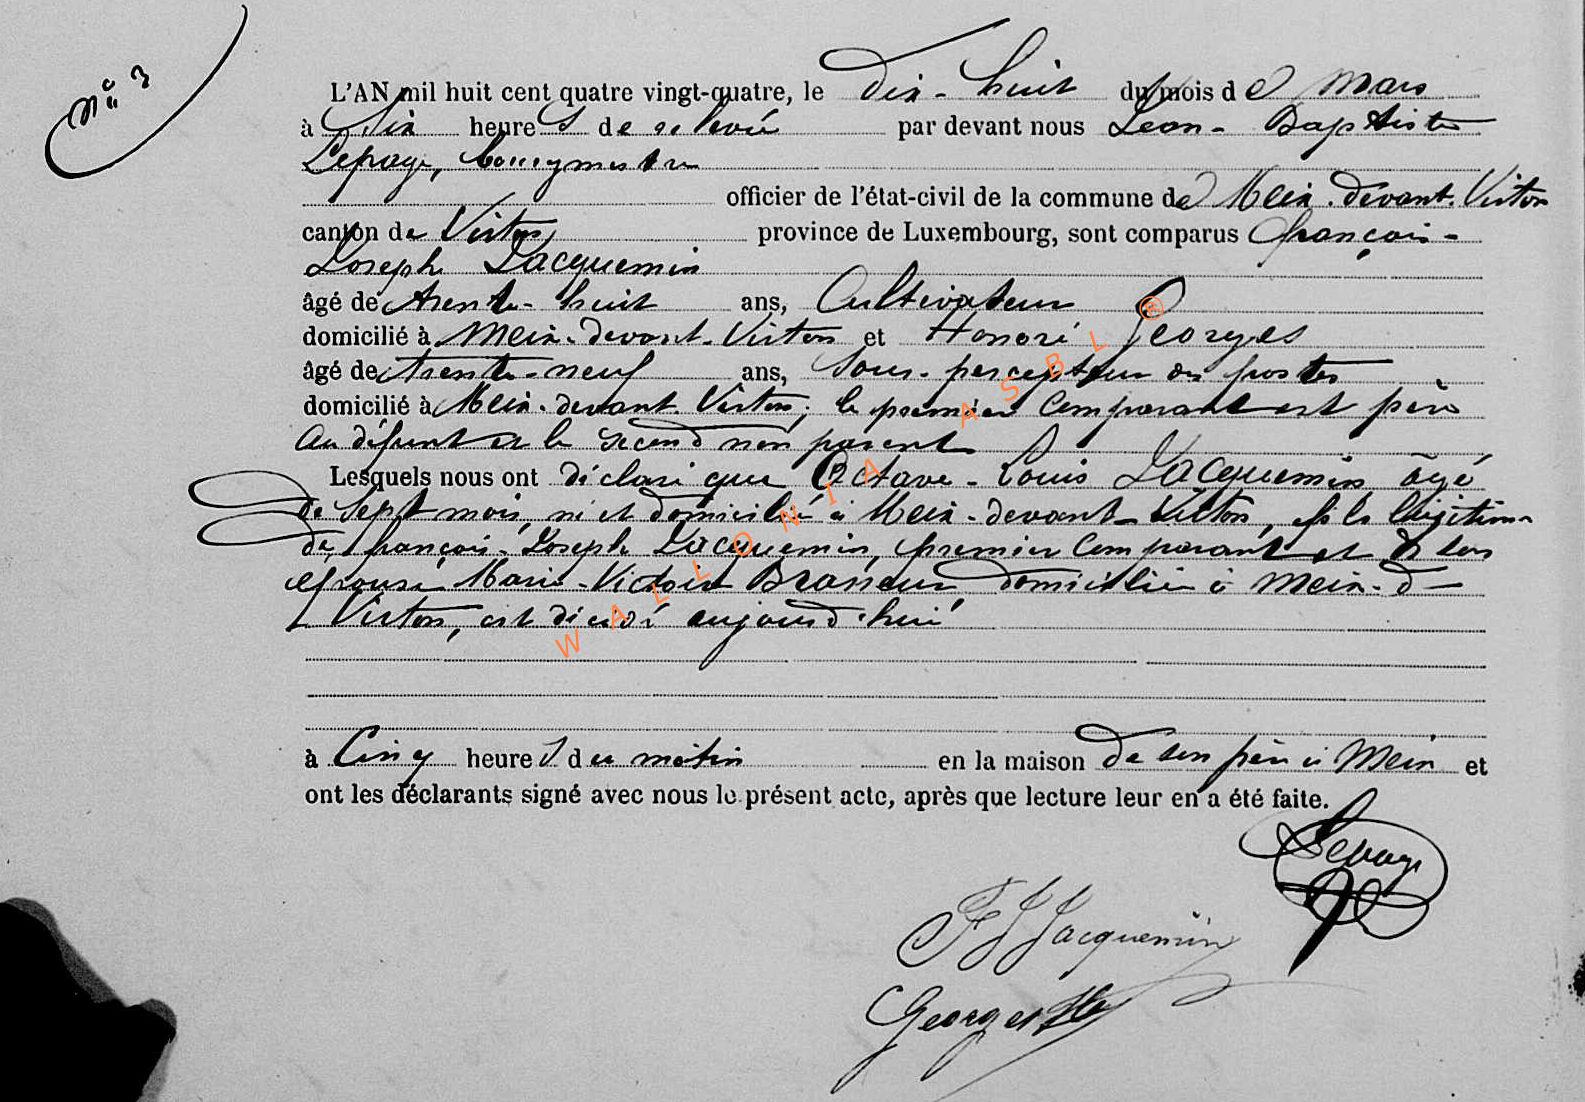 N° 3
L'AN mil huit cent quatre vingt-quatre, le dix-huit du mois de Mars
à Six heures de relevée par devant nous Jean-Baptiste
Lepage, bourgmestre
officier de l'état-civil de la commune de Meix-devant-Virton
canton de Virton province de Luxembourg, sont comparus François-
Joseph Jacquemin
âgé de trente-huit ans, Cultivateur
domicilié à Meix-devant-Virton et Honoré Georges
âgé de trente-neuf ans, Sous-percepteur des postes
domicilié à Meix-devant-Virton; le premier Comparant est père
au défunt et le second non parent
Lesquels nous ont déclaré que Octave-Louis Jacquemin âgé
de Sept mois, né et domicilié à Meix-devant-Virton, fils légitime
de François-Joseph Jacquemin, premier Comparant et de son
épouse Marie-Victoire Brasseur domiciliée à Meix-d-
Virton, est décédé aujourd'hui
à Cinq heures du matin en la maison de son père à Meix et
ont les déclarants signé avec nous le présent acte, après que lecture leur en a été faite.
Lepage
F J Jacquemin
Georges
WALLONIA ASBL ®